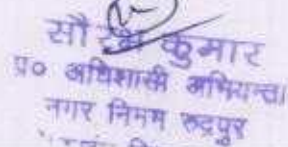 सौरभ कुमार
प्र० अधिशासी अभियन्ता
नगर निगम रुद्रपुर